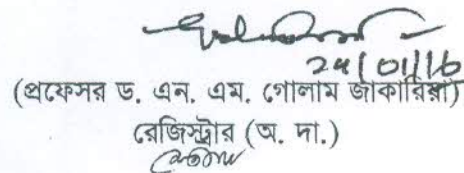 ২৭/০১/১৬
(প্রফেসর ড. এন. এম. গোলাম জাকারিয়া)
রেজিস্ট্রার (অ. দা.)